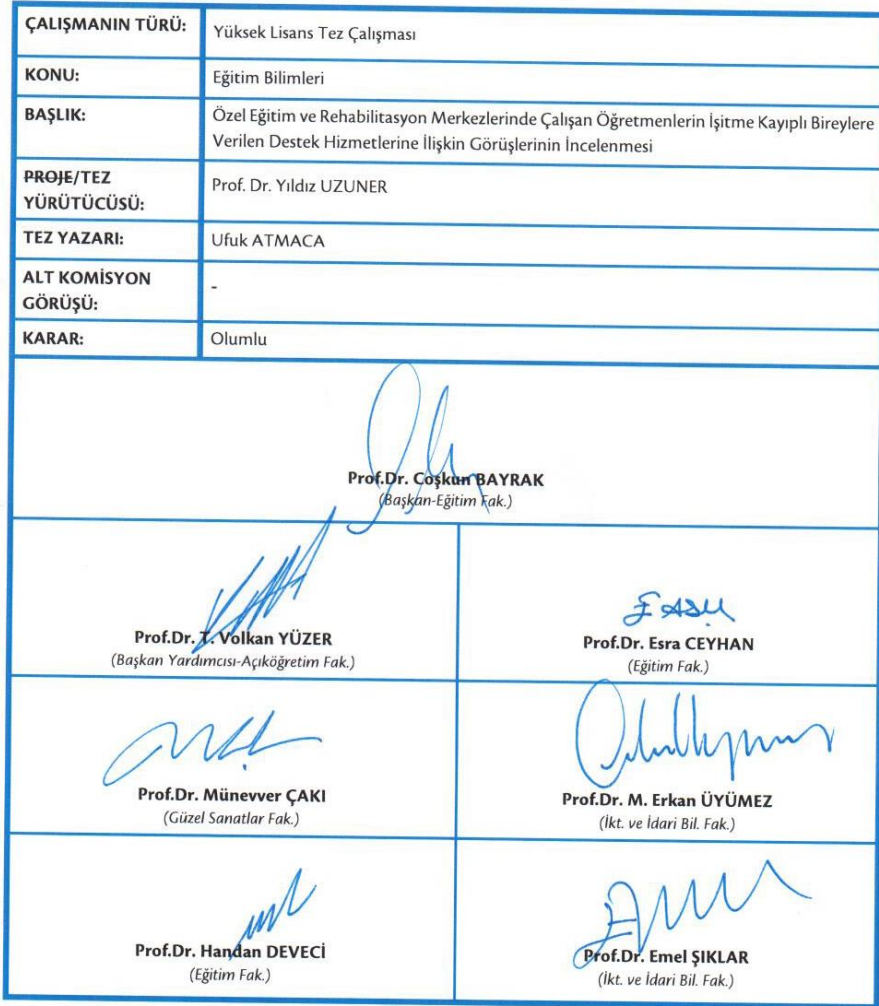 ÇALIŞMANIN TÜRÜ: Yüksek Lisans Tez Çalışması
KONU: Eğitim Bilimleri
BAŞLIK: Özel Eğitim ve Rehabilitasyon Merkezlerinde Çalışan Öğretmenlerin İşitme Kayıplı Bireylere
Verilen Destek Hizmetlerine İlişkin Görüşlerinin İncelenmesi
PROJE/TEZ
YÜRÜTÜCÜSÜ:
Prof. Dr. Yıldız UZUNER
TEZ YAZARI: Ufuk ATMACA
ALT KOMİSYON
GÖRÜŞÜ:
-
KARAR: Olumlu
Prof.Dr. Coşkun BAYRAK
(Başkan-Eğitim Fak.)
Prof.Dr. T. Volkan YÜZER
(Başkan Yardımcısı-Açıköğretim Fak.)
Prof.Dr. Esra CEYHAN
(Eğitim Fak.)
Prof.Dr. Münevver ÇAKI
(Güzel Sanatlar Fak.)
Prof.Dr. M. Erkan ÜYÜMEZ
(İkt. ve İdari Bil. Fak.)
Prof.Dr. Handan DEVECİ
(Eğitim Fak.)
Prof.Dr. Emel ŞIKLAR
(İkt. ve İdari Bil. Fak.)